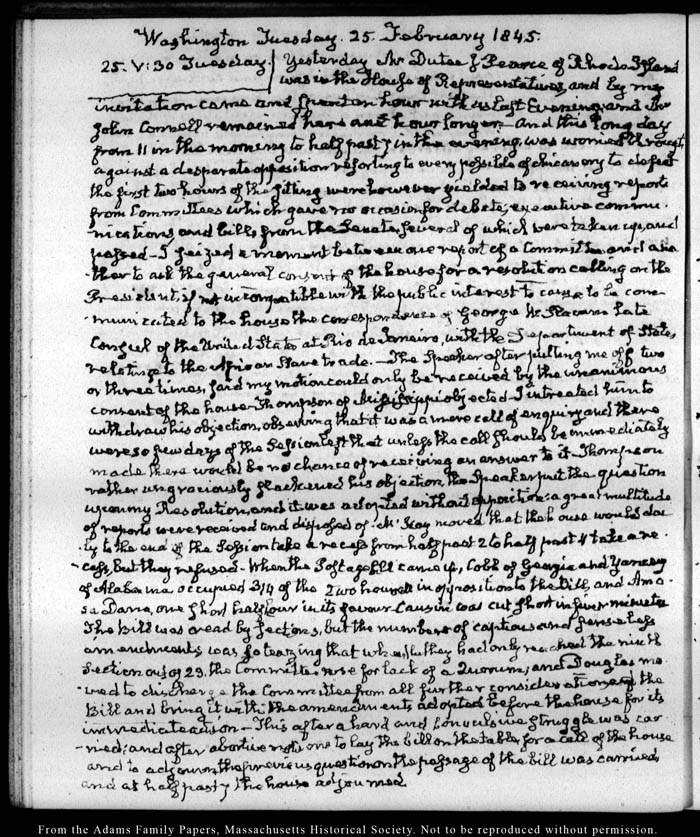 Washington Tuesday. 25. February 1845.
25. V:30 Tuesday. Yesterday Mr Dutee J Pearce of Rhode Island
was in the House of Representatives, and by my
invitation came and spent an hour with us last Evening and Mr
John Connell remained here an hour longer – And this long day
from 11 in the morning to half past 7 in the evening, was worried through,
against a desperate opposition resorting to every possible chicanery to defeat
the first two hours of the sitting were however yielded to receiving reports
from Committees which gave no occasion for debate, executive commu-
-nications, and bills from the Senate, several of which were taken up, and
passed – I seized a moment between one report of a Committee and ano
-ther to ask the general consent of the house for a resolution calling on the
President, if not incompatible with the public interest to cause to be com-
-municated to the house the correspondence of George W. Slacum late
Consul of the United States at Rio de Janeiro, with the Department of State,
relating to the African Slave trade. – The Speaker after putting me off two
or three times, said my motion could only be received by the unanimous
consent of the house – Thompson of Mississippi objected – I intreated him to
withdraw his objection, observing that it was a mere call of enquiry and there
were so few days of the Session left that unless the call should be immediately
made there would be no chance of receiving an answer to it – Thompson
rather ungraciously slackened his objection, the Speaker put the question
upon my Resolution, and it was adopted without opposition: a great multitude
of reports were received and disposed of. Mr Hoy moved that the house would dai
ly to the end of the Session take a recess from half past 2 to half past 4 take a re-
-cess, but they refused. When the Postage bill came up, Cobb of Georgia and Yancey
of Alabama occupied 3/4 of the two hours in opposition to the bill, and Ama
-sa Dana, one short half hour in its favour Causin was cut short in five minutes
The Bill was read by sections, but the numbers of captious and senseless
amendments was so teazing that when they had only reached the ninth
Section out of 23, the Committee rose for lack of a Quorum; and Douglas mo
-ved to discharge the Committee from all further consideration of the
Bill and bring it with the amendments adopted before the house for its
immediate action – This after a hard and convulsive struggle was car
-ried; and after abortive motions to lay the bill on the table, for a call of the house
and to adjourn the previous question on the passage of the bill was carried,
and at half past 7 the house adjourned.
From the Adams Family Papers, Massachusetts Historical Society. Not to be reproduced without permission.